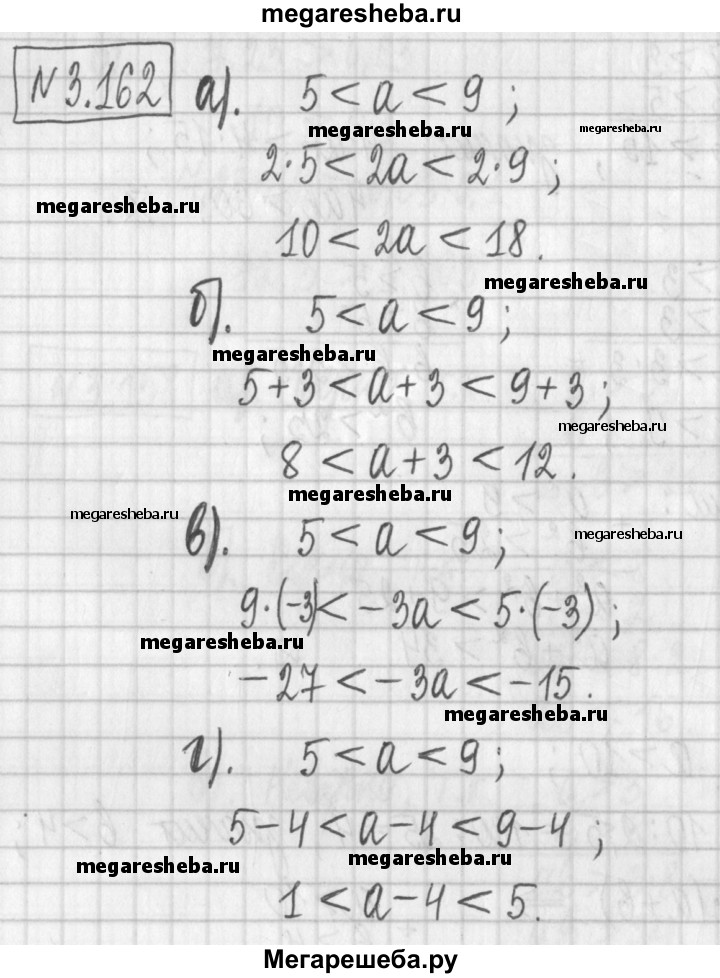 megaresheba.ru
№ 3.162 а). 5 < a < 9 ;
megaresheba.ru megaresheba.ru
2·5 < 2a < 2·9 ;
megaresheba.ru
10 < 2a < 18.
megaresheba.ru
б). 5 < a < 9 ;
megaresheba.ru
5+3 < a+3 < 9+3 ;
megaresheba.ru
8 < a+3 < 12.
megaresheba.ru
megaresheba.ru
в). 5 < a < 9 ;
megaresheba.ru
9·(-3) < -3a < 5·(-3) ;
megaresheba.ru
-27 < -3a < -15.
megaresheba.ru
г). 5 < a < 9 ;
5-4 < a-4 < 9-4 ;
megaresheba.ru megaresheba.ru
1 < a-4 < 5.
Мегарешеба.ру